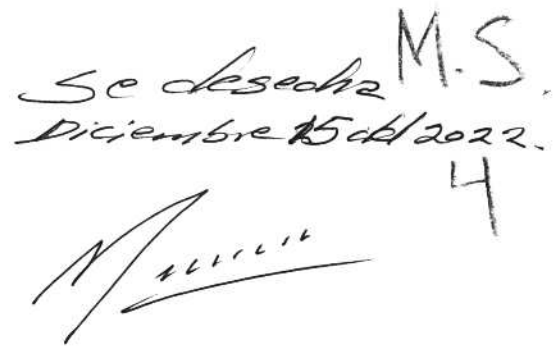 Se desecha M.S.
Diciembre 15 del 2022.
4